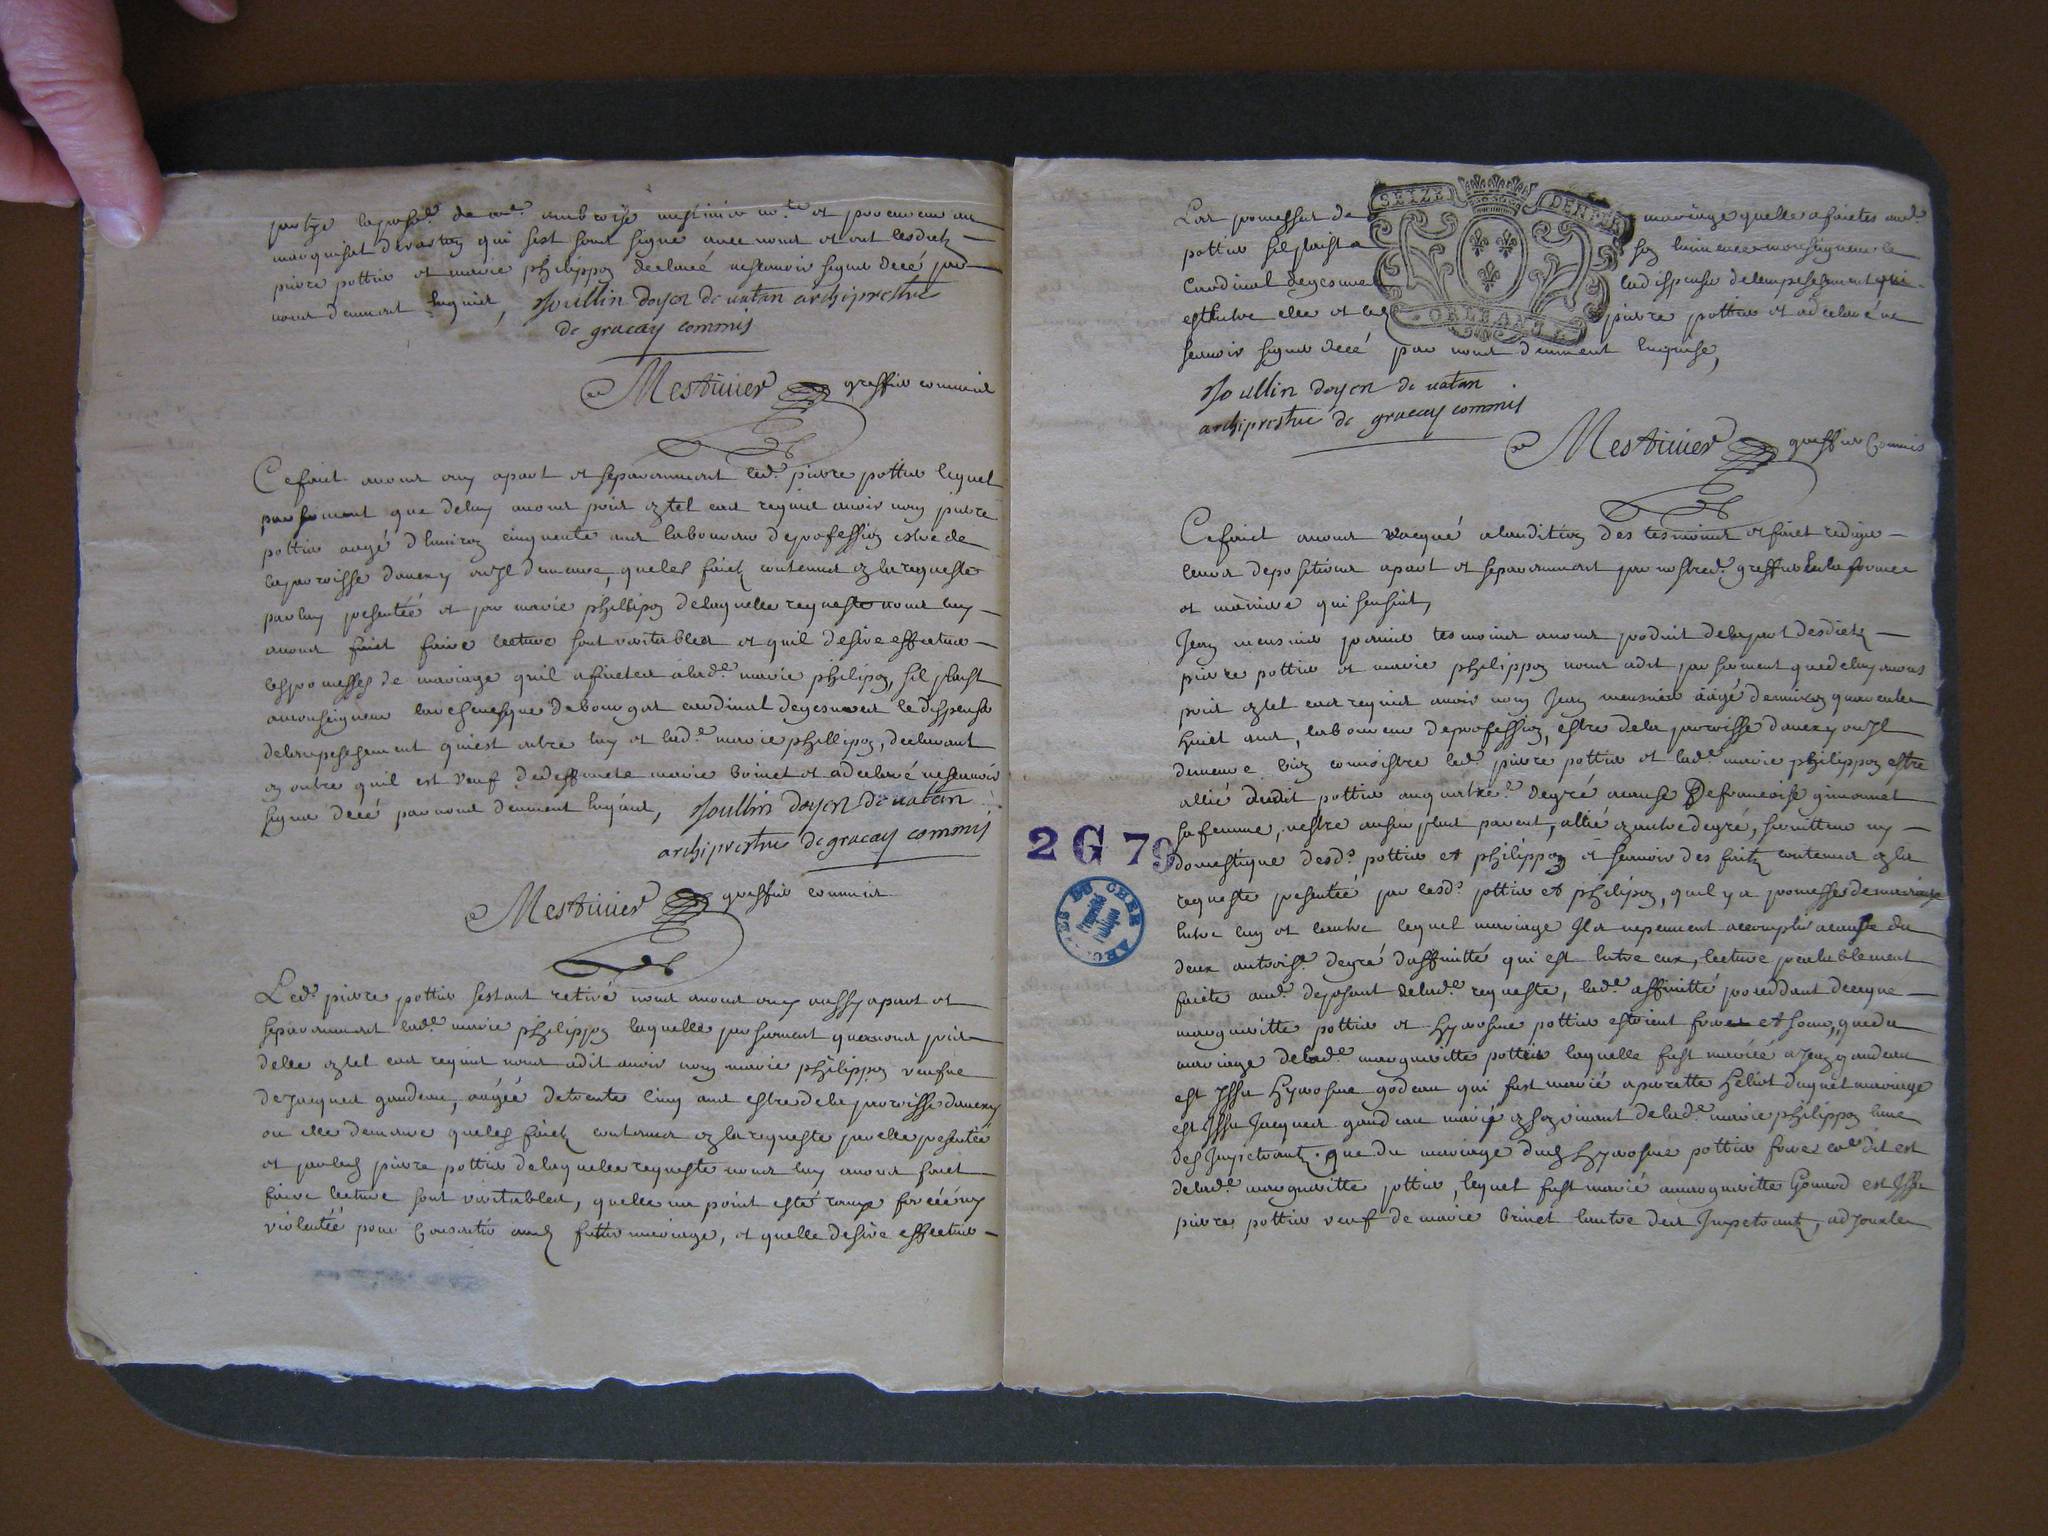 partye la pnse de me ambroise mestivier nore et procureur au
marquisat de vartan qui sest soubs signé avec nous et ont lesdictz
pierre pottier et marie philippon declaré ne scavoir signer decé par
nous deument enquiest, Joullin doyen de vatan archiprestre
de gracay commis
Mestivier greffier commis
Ce faict avons ouy apart et separemment led. pierre pottier lequel
par serment que de luy avons prist en tel cas requist avoir nom pierre
pottier aagé d'environ cinquente ans laboureur de profession estre de
la parroisse d'anexy ou Il demeure, que les faictz contenus en la requeste
par luy presentéé et par marie phillipon de laquelle requeste nous luy
avons faict faire lecture sont veritables et quil desire effectuer
les promesses de mariage quil a faictes a lad.e marie philipon, sil plaist
a monseigneur l'archevesque de bourges cardinal de gesvres le dispenser
de l'empeschement qui est entre luy et lad.e marie phillipon, declarant
en outre quil est veuf de deffuncte marie boinet et a declaré ne scavoir
signer decé par nous deument enquis, Joullin doyen de vatan
archiprestre de gracay commis
Mestivier greffier commis
Led. pierre pottier sestant retiré nous avons ouy aussy apart et
separemment lad.e marie philippon laquelle par serment quavons prist
delle en tel cas requist nous a dit avoir nom marie philippon veufve
de Jacques gaudeau, aagée de trente cinq ans estre de la parroisse d'anexy
ou elle demeure que les faictz contenus en la requeste par elle presentéé
et par led. pierre pottier de laquelle requeste nous luy avons faict
faire lecture sont veritables, quelle na point esté ravye forcéé ny
violentéé pour consentir aud. futur mariage, et quelle desire effectuer
Les promesses de mariage quelle a faictes aud.
pottier sil plaist a son eminence monseigneur le
cardinal de gesvres la dispenser de l'empeschement qui
est entre elle et led. pierre pottier et a declaré ne
scavoir signer decé par nous deument enquise,
SEIZE DENIERS
ORLEANS
Joullin doyen de vatan
archiprestre de gracay commis
Mestivier greffier commis
Ce faict avons vacqué a laudition des tesmoins et faict rediger
leurs depositions apart et separemment par nostred. greffier en la forme
et maniere qui sensuit,
Jean mensnier premier tesmoins avons produit de la part desdictz
pierre pottier et marie philippon nous a dit par serment que de luy avons
prist en tel cas requist avoir nom Jean mensnier aagé denviron quarente
huict ans, laboureur de profession, estre de la parroisse d'anexy ou Il
demeure bien connoistre led. pierre pottier et lad.e marie philippon estre
allié dudit pottier au quatre.e degré a cause De francoise gimonnet
sa femme, nestre aucun plus parent, allié en autre degré, serviteur ny
domestique desd.s pottier et philippon et scavoir des faitz contenus en la
requeste presentéé par lesd.s pottier et philipon, quil y a promesses de mariage
entre luy et lautre lequel mariage Il a nepeuvent accomplir a cause du
deux au trois.e degré d'affinitté qui est entre eux, lecture prealablement
faicte aud. deposant de lad.e requeste, lad.e affinitté proceddant de ce que
margueritte pottier et Hyerosme pottier estoient freres et soeur, que du
mariage de lad.e margueritte pottier laquelle fust mariéé a Jean gaudeau
est Issu Hyerosme godeau qui fust marié a perrette Heliot duquel mariage
est Issu Jacques gaudeau marié en son vivant de lad.e marie philippon lune
des Impetrantz que du mariage dud. Hyerosme pottier frere co.e dit est
de lad.e margueritte pottier, lequel fust marié a margueritte Gomard est Issu
pierre pottier veuf de marie brinet lautre des Impetrantz, adJouxter
2 G 79
ARCHIVES DU CHER
Propriété
Publique